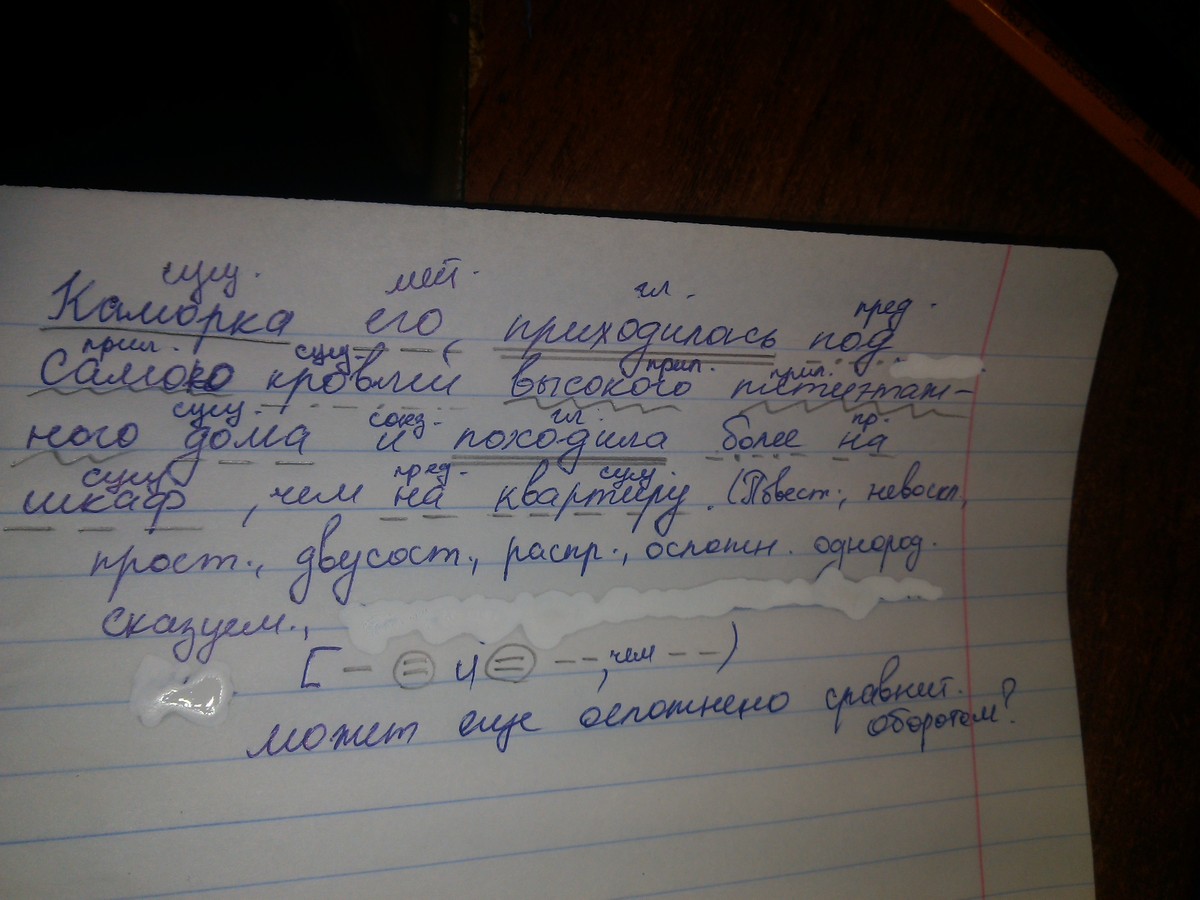 сущ. мест. гл. пред.
Каморка его приходилась под
прил. сущ. прил. прил.
самою кровлей высокого пятиэтаж-
сущ. союз. гл. пр.
ного дома и походила более на
сущ. пред. сущ.
шкаф, чем на квартиру. (Повест., невоскл.,
прост., двусост., распр., осложн. однород.
сказуем.,
[— = и = – –, чем – –)
может еще осложнено сравнит.
оборотом?